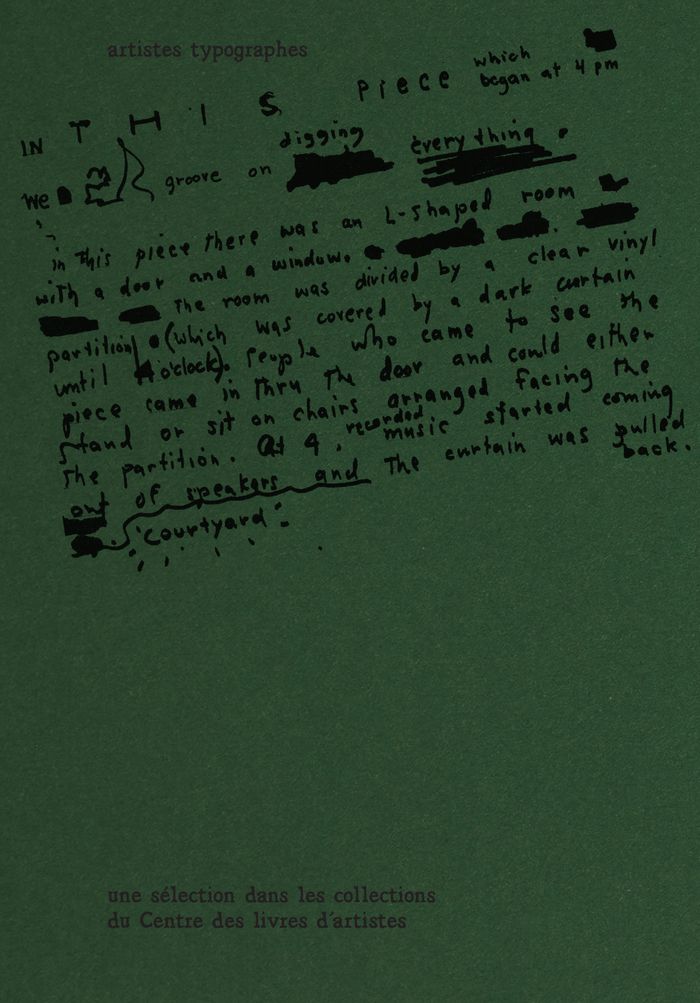 artistes typographes
IN THIS piece which
began at 4 pm
We groove on digging everything.
in this piece there was an L-shaped room
with a door and a window.
The room was divided by a clear vinyl
partition (which was covered by a dark curtain
until 4 o'clock). People who came to see the
piece came in thru the door and could either
stand or sit on chairs arranged facing the
the partition. At 4, recorded music started coming
out of speakers and the curtain was pulled
back.
"Courtyard"
une sélection dans les collections
du Centre des livres d'artistes